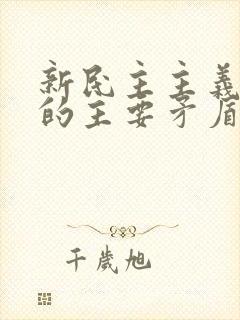 新民主主義
的主要矛盾
千歲旭